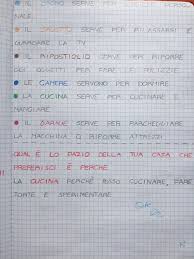 IL BAGNO SERVE PER L'IGIENE PERSO
NALE.
IL SALOTTO SERVE PER RILASSARSI E
GUARDARE LA TV
IL RIPOSTIGLIO SERVE PER RIPORRE
DEGLI OGGETTI PER FARE LE PULIZIE
LE CAMERE SERVONO PER DORMIRE
LA CUCINA SERVE PER CUCINARE
MANGIARE
IL GARAGE SERVE PER PARCHEGGIARE
LA MACCHINA O RIPORRE ATTREZZI
QUAL È LO SPAZIO DELLA TUA CASA CHE
PREFERISCI E PERCHÉ
LA CUCINA PERCHÉ POSSO CUCINARE, FARE
TORTE E SPERIMENTARE